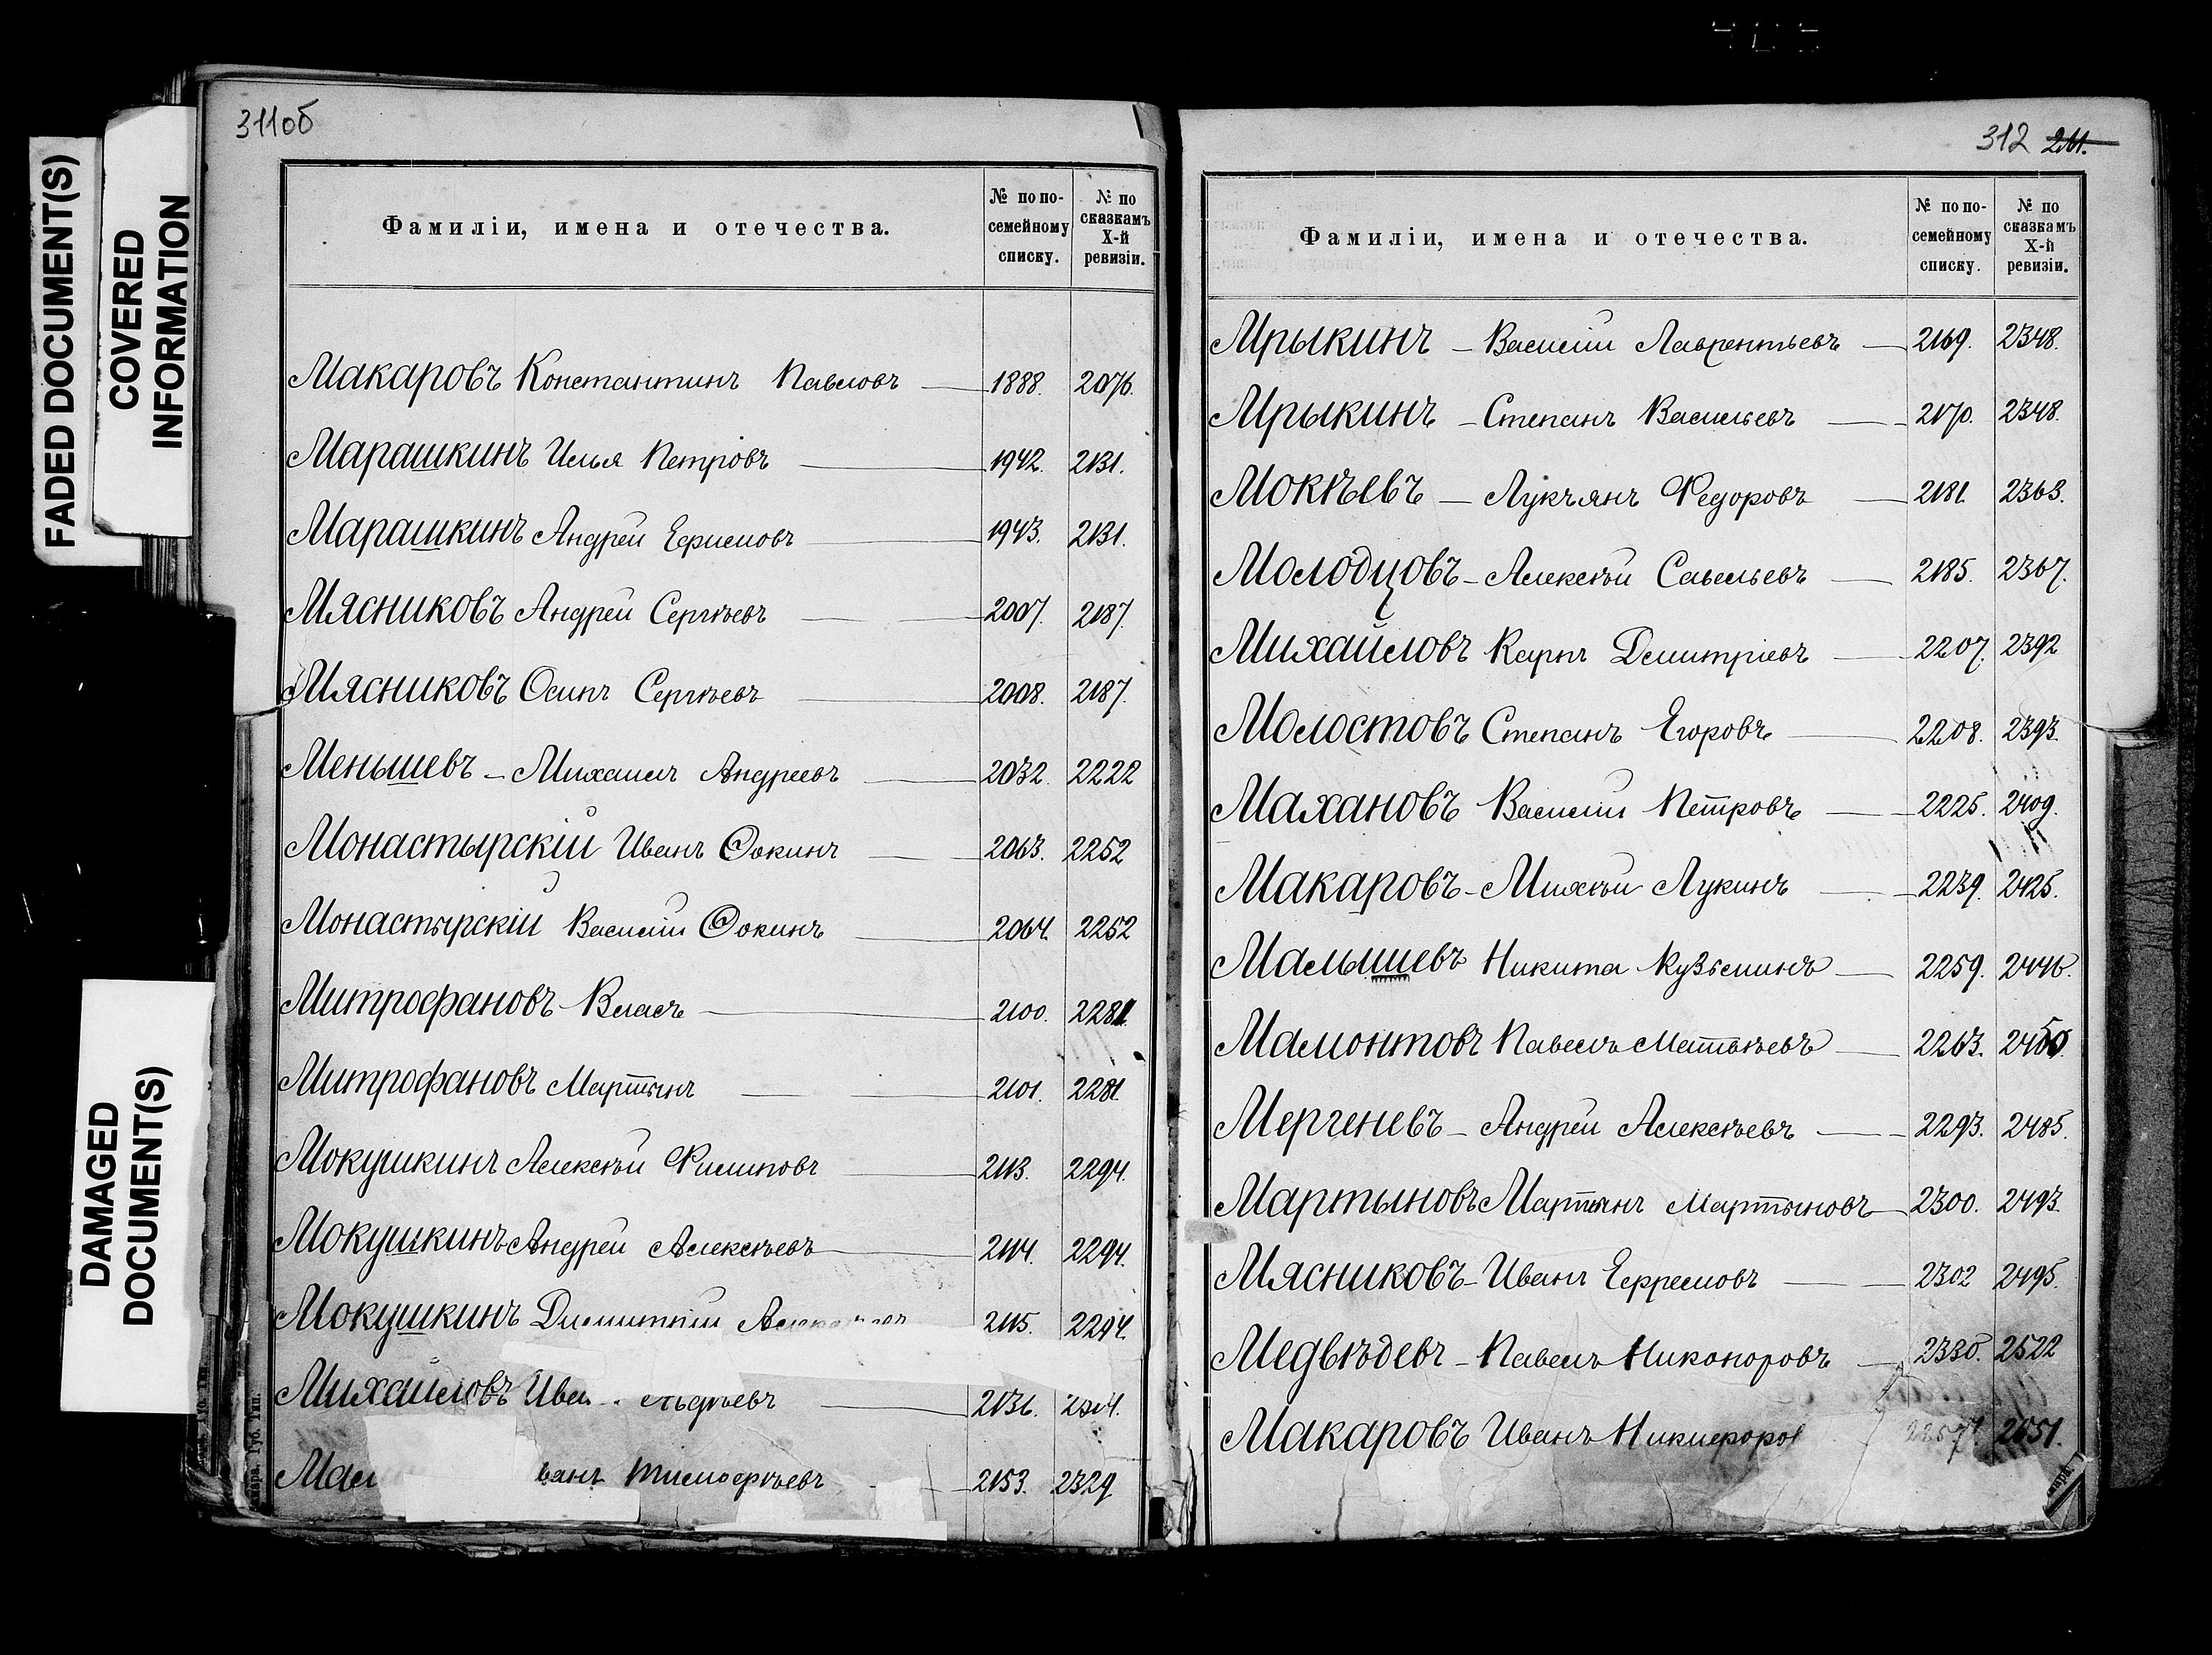 FADED DOCUMENT(S)
COVERED
INFORMATION
DAMAGED
DOCUMENT(S)
311об
Фамиліи, имена и отечества.
№ по по-
семейному
списку.
№ по
сказкамъ
X-й
ревизіи.
Макаровъ Константинъ Павловъ 1888. 2076.
Марашкинъ Илья Петровъ 1942. 2131.
Марашкинъ Андрей Ефимовъ 1943. 2131.
Мясниковъ Андрей Сергѣевъ 2007. 2187.
Мясниковъ Осипъ Сергѣевъ 2008. 2187.
Меньшевъ - Михаилъ Андреевъ 2032. 2222
Монастырскій Иванъ Ѳокинъ 2063. 2252
Монастырскій Василій Ѳокинъ 2064. 2252
Митрофановъ - Власъ 2100. 2281.
Митрофановъ Мартынъ 2101. 2281.
Мокушкинъ Алексѣй Филиповъ 2113. 2294.
Мокушкинъ Андрей Алексѣевъ 2114. 2294.
Мокушкинъ Димитрій 2115. 2294.
Михайловъ 2131.
Тимофѣевъ 2153. 2329
312 261.
Фамиліи, имена и отечества.
№ по по-
семейному
списку.
№ по
сказкамъ
X-й
ревизіи.
Мрыкинъ - Василій Лаврентьевъ 2169. 2348.
Мрыкинъ - Степанъ Васильевъ 2170. 2348.
Мокѣевъ - Лукъянъ Федоровъ 2181. 2363.
Молодцовъ - Алексѣй Савельевъ 2185. 2367.
Михайловъ Карпъ Димитріевъ 2207. 2392
Молостовъ Степанъ Егоровъ 2208. 2393.
Махановъ Василій Петровъ 2225. 2409.
Макаровъ - Михѣй Лукинъ 2239. 2425.
Малышевъ Никита Кузьминъ 2259. 2446.
Мамонтовъ Павелъ Матвѣевъ 2263. 2450.
Мергеневъ - Андрей Алексѣевъ 2293. 2485.
Мартыновъ Мартынъ Мартыновъ 2300. 2493.
Мясниковъ - Иванъ Ефремовъ 2302 2495.
Медвѣдевъ - Павелъ Никоноровъ 2330. 2522
Макаровъ Иванъ Никифоров